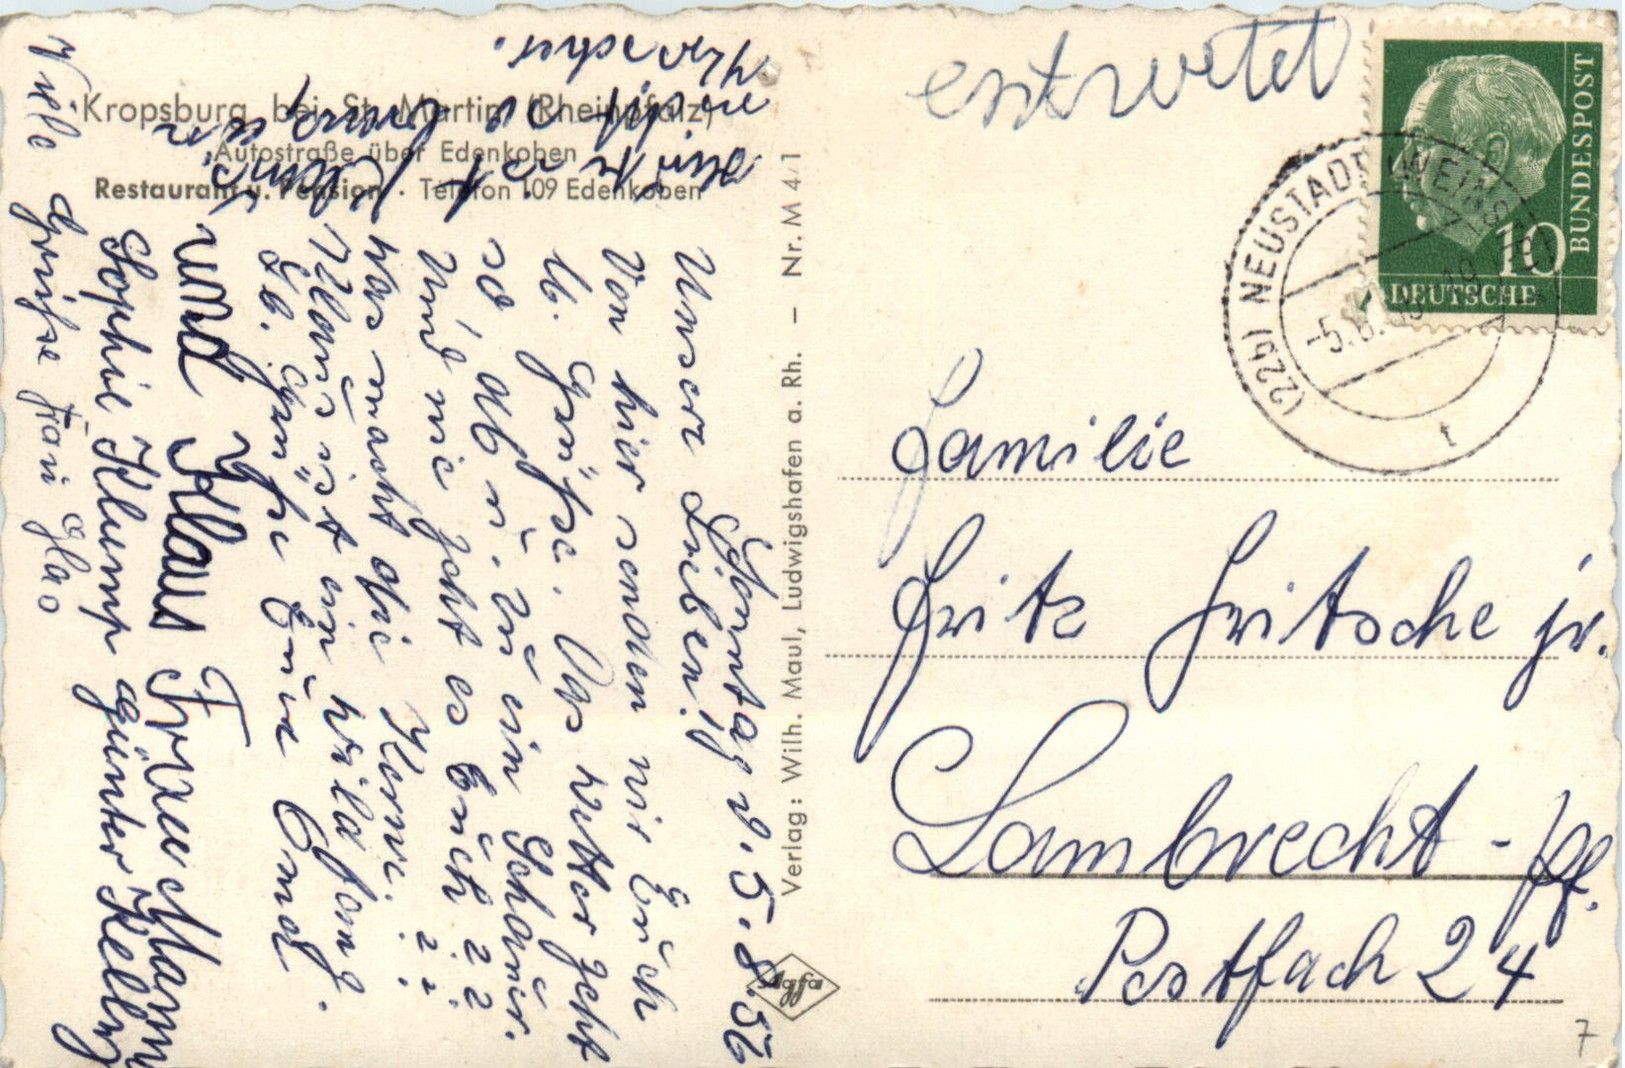 Kropsburg bei St. Martin (Rheinpfalz)
Autostraße über Edenkoben
Restaurant u. Pension · Telefon 109 Edenkoben
Verlag: Wilh. Maul, Ludwigshafen a. Rh. — Nr. M 4/1
Agfa
Sonntag d. 5.8.56
Unsere Lieben!
Von hier senden wir Euch
lb. Grüße. Das Wetter geht
so, ab u. zu ein Schauer.
Und wie geht es Euch ? ?
Was macht die Kerwe. ? ?
Klaus ist ein Wildfang.
Lb. Grüße Eure Erna
und Klaus Frau Mann
Sophie Klump Günter
Viele Grüße
entwertet
DEUTSCHE
BUNDESPOST
10
(22b) NEUSTADT (WEINSTR)
Familie
Fritz Fritsche jr.
Lambrecht - Pf.
Postfach 24
7